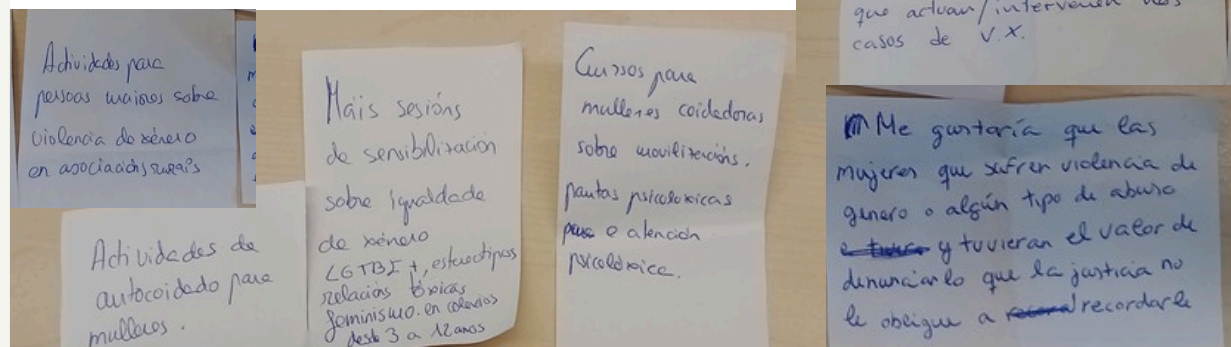 Actividades para
persoas maiores sobre
violencia de xénero
en asociacións rurais
Actividades de
autocoidado para
mulleres.
Máis sesións
de sensibilización
sobre igualdade
de xénero
LGTBI+, estereotipos
relacións tóxicas
feminismo. en colexios
desde 3 a 12 anos
Cursos para
mulleres coidadoras
sobre movilizacións.
pautas psicoloxicas
e atención
psicolóxica.
que actuan/interveñen nos
casos de V.X.
Me gustaría que las
mujeres que sufren violencia de
genero o algún tipo de abuso
y tuvieran el valor de
denunciarlo que la justicia no
le obligue a recordarle